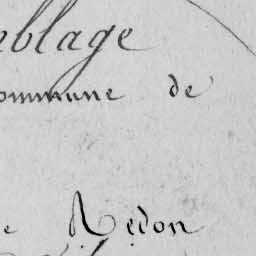 eblage
ommune de
e Redon